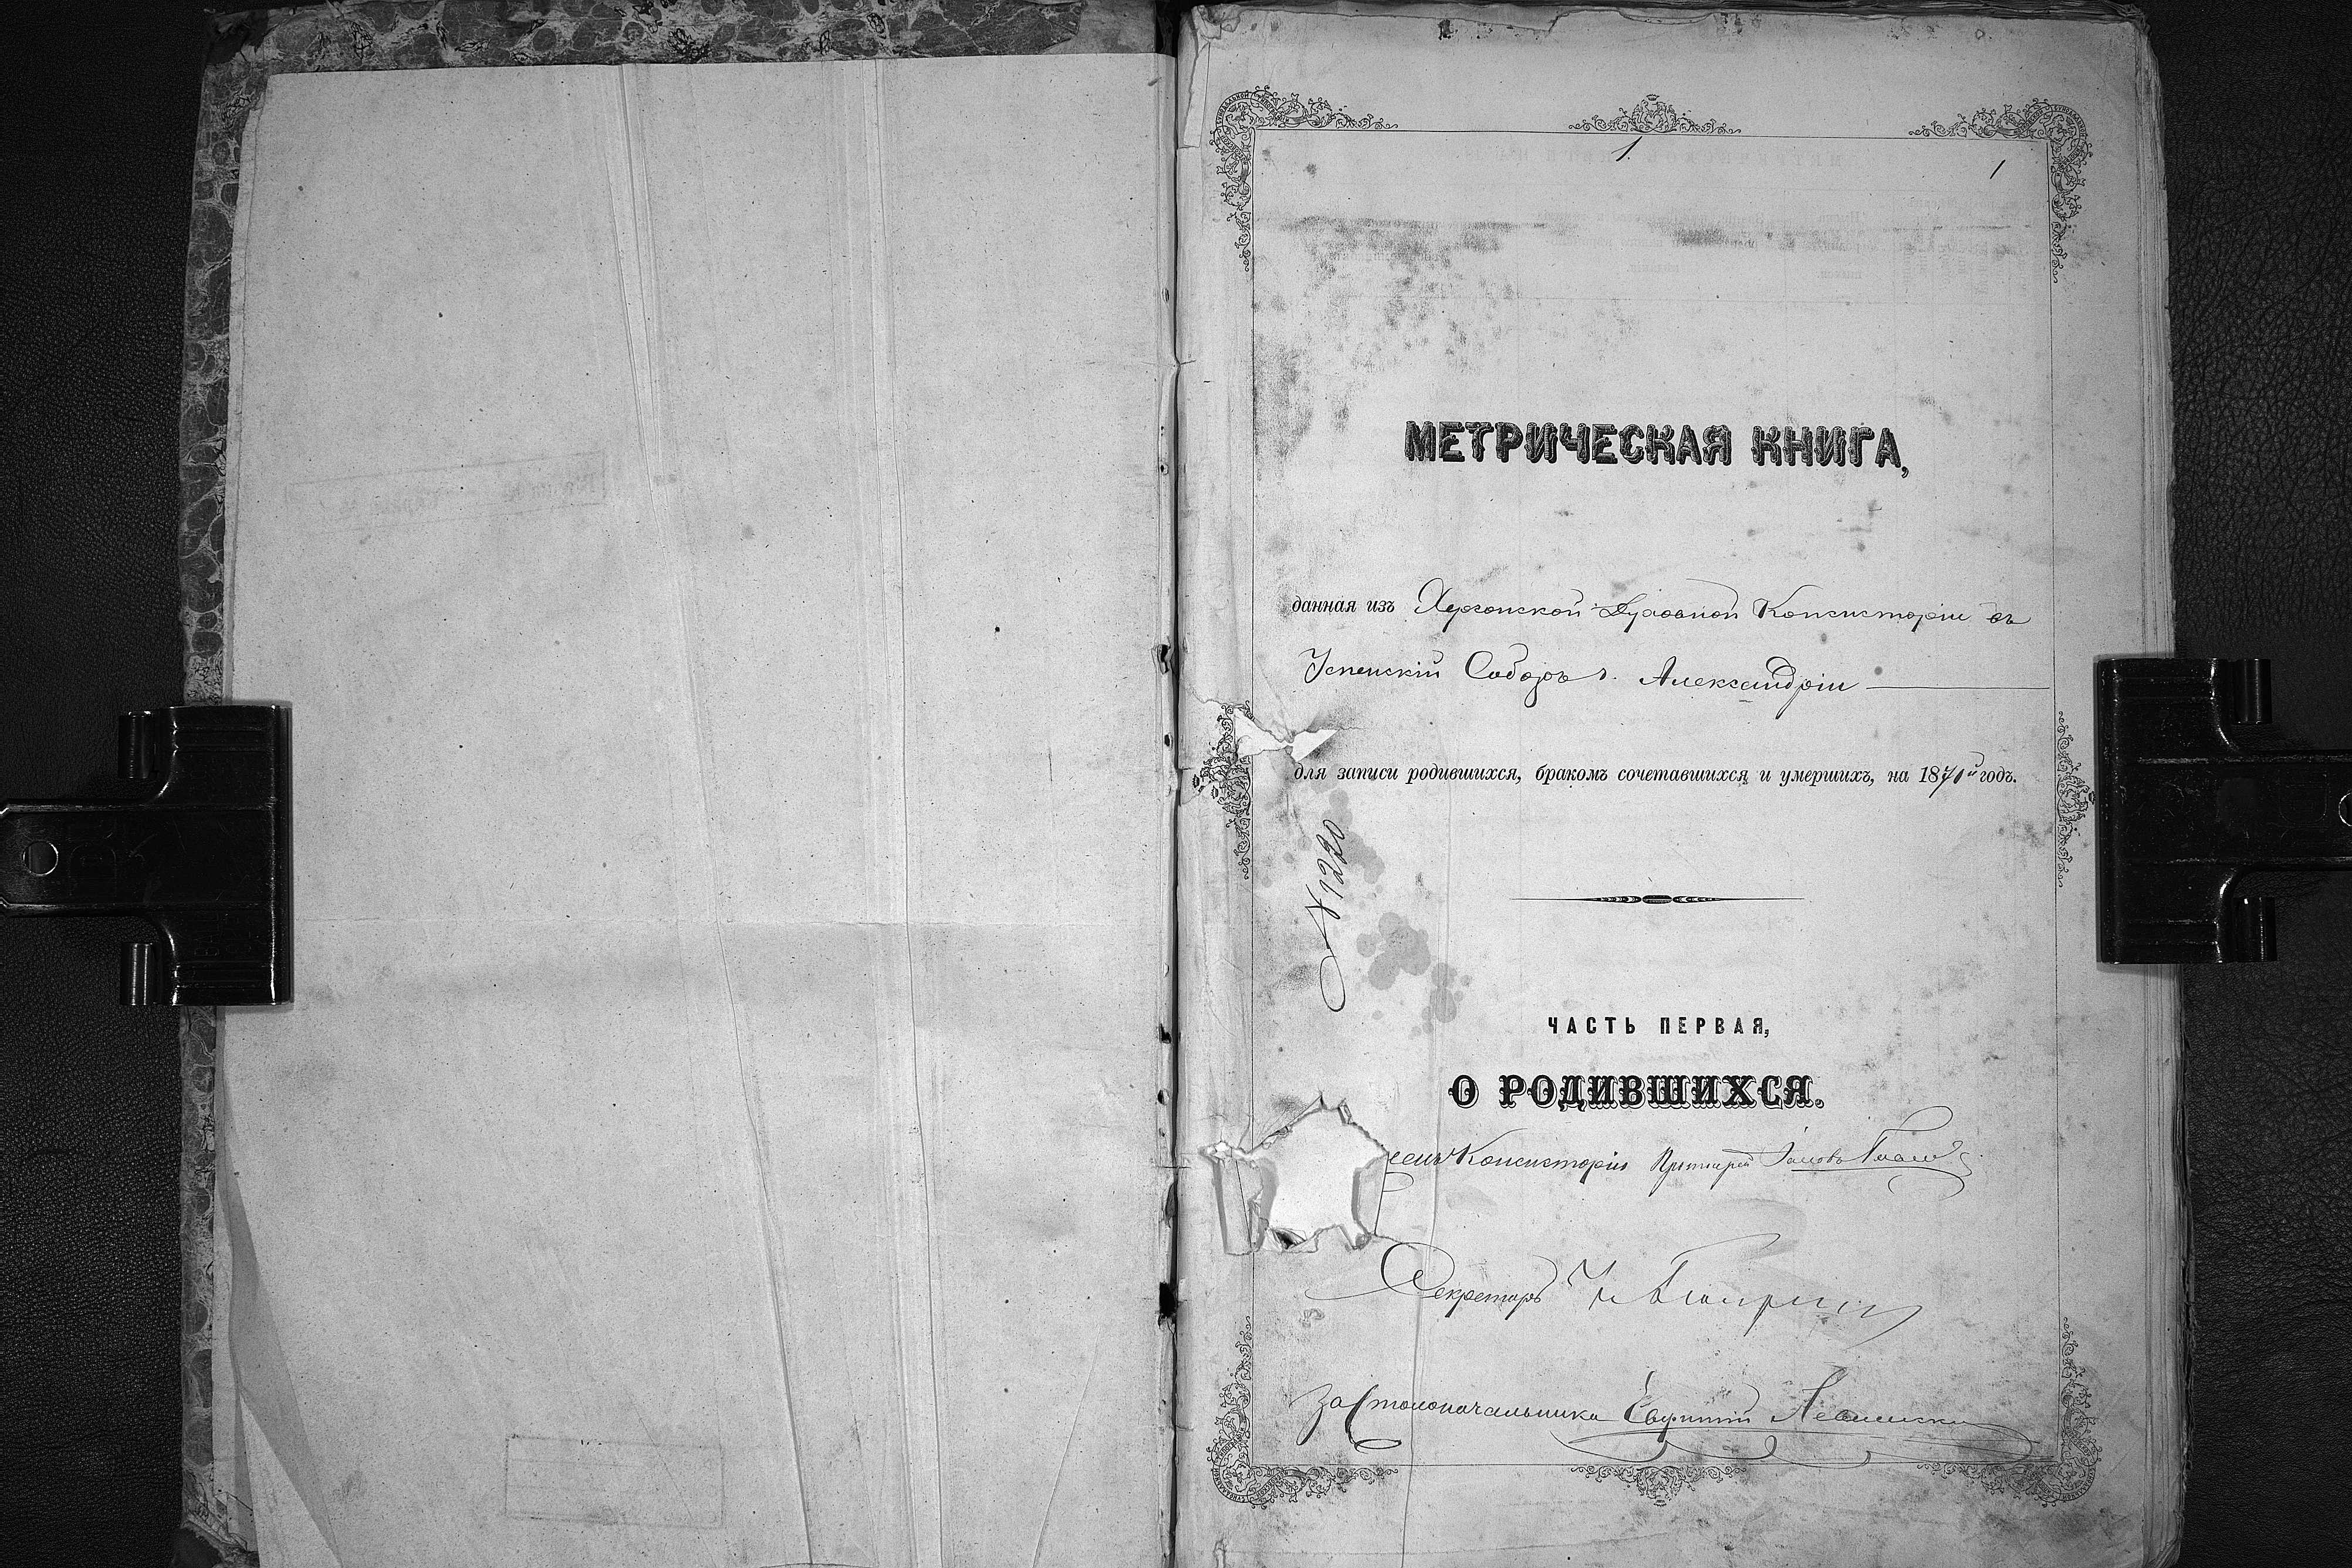 1.
1
МЕТРИЧЕСКАЯ КНИГА,
данная изъ Херсонской Духовной Консисторіи въ
Успенскій Соборъ г. Александріи
для записи родившихся, бракомъ сочетавшихся и умершихъ, на 1871й годъ.
№ 1220
ЧАСТЬ ПЕРВАЯ,
О РОДИВШИХСЯ.
Консисторіи Протоіерей
Секретарь
За Столоначальника Евфимій